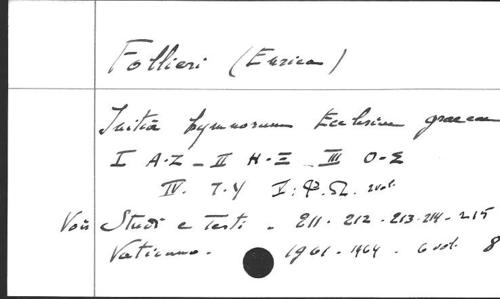 Follieri (Enrica)
Initia hymnorum Ecclesiae graecae
I A-Z _ II H-Ξ _ III O-Σ
IV. T-Y V: Φ.Ω. 2vol.
Voir Studi e Testi . 211 - 212 - 213-214 - 215
Vaticano . 1961 - 1964 . 6 vol. 8